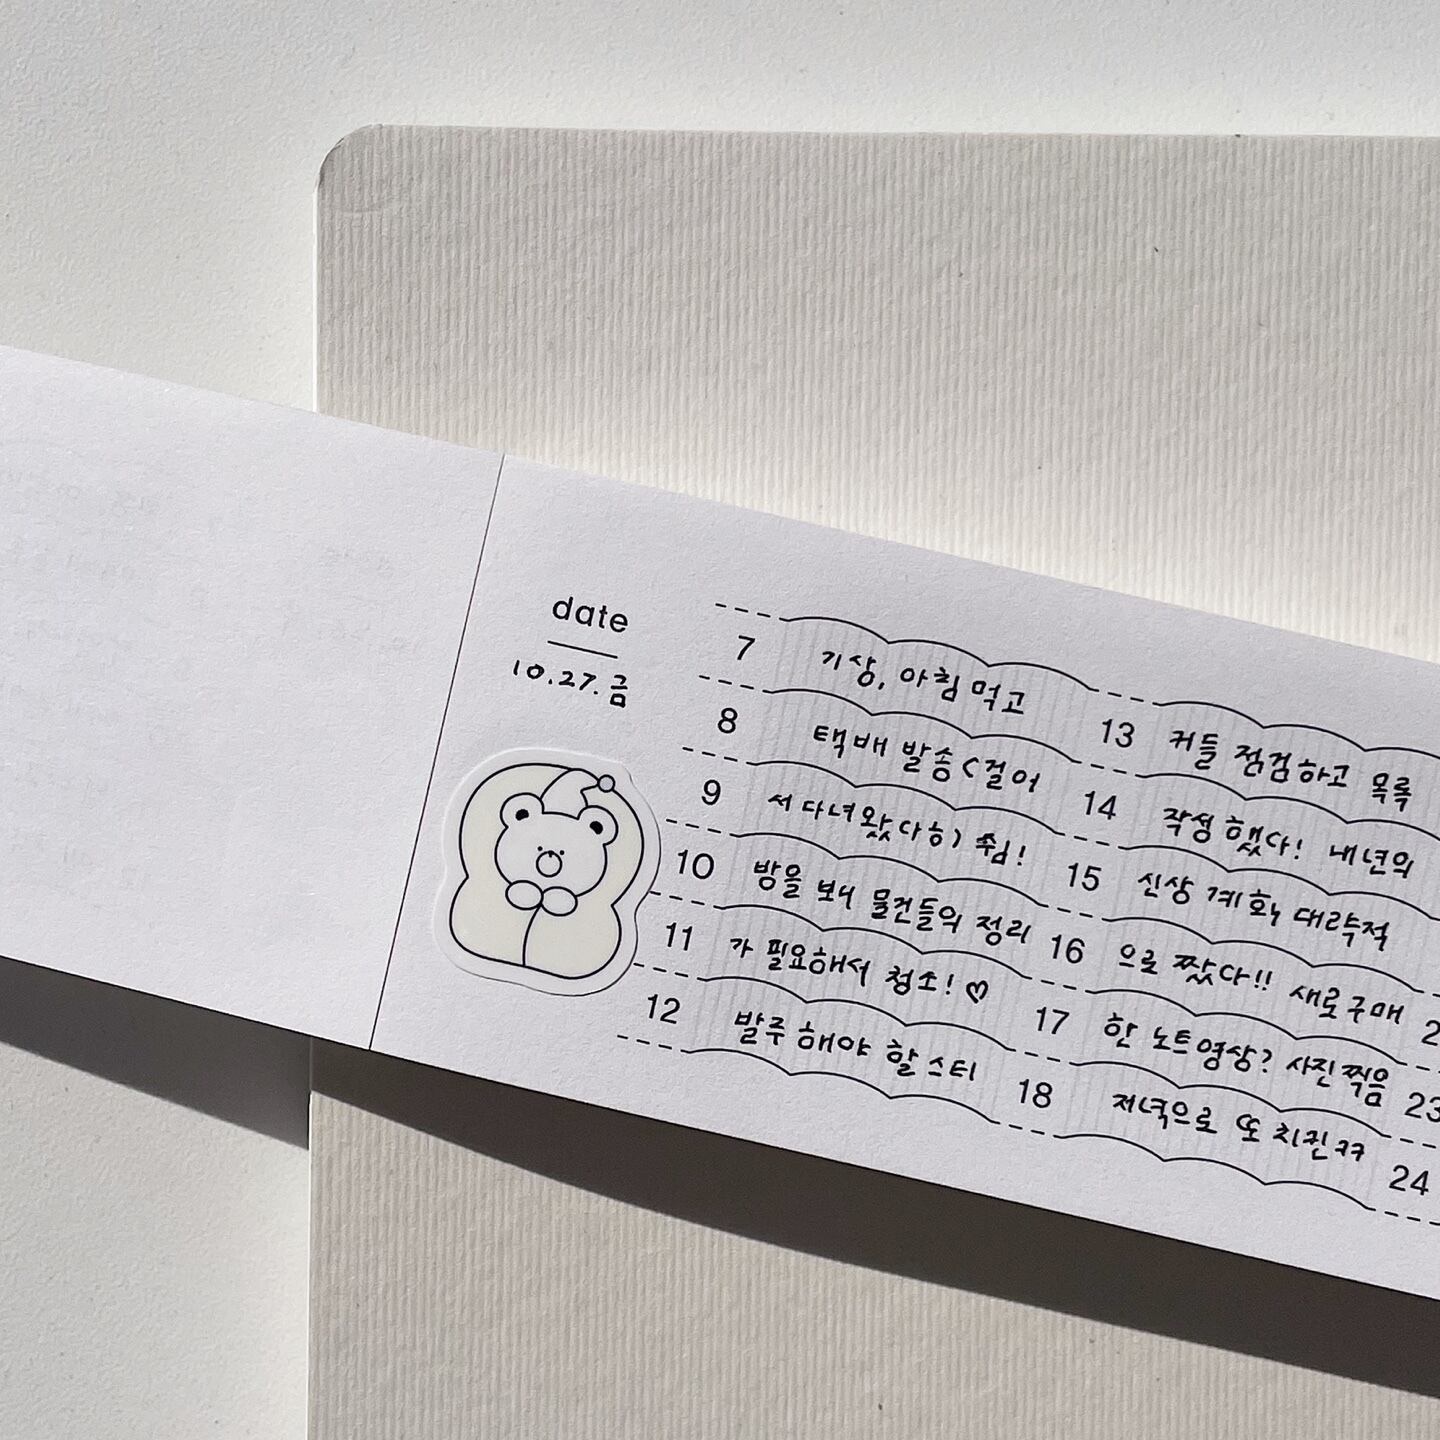 date
10.27.금
7 기상, 아침 먹고
8 택배 발송(걸어
9 서 다녀왔다히) 쉼!
10 방을 보니 물건들의 정리
11 가 필요해서 청소! ♡
12 발주 해야 할 스티
13 커들 점검하고 목록
14 작성 했다! 내년의
15 신상 계획, 대략적
16 으로 짰다!! 새로 구매
17 한 노트 영상? 사진 찍음
18 저녁으로 또 치킨 ㅋㅋ
23
24